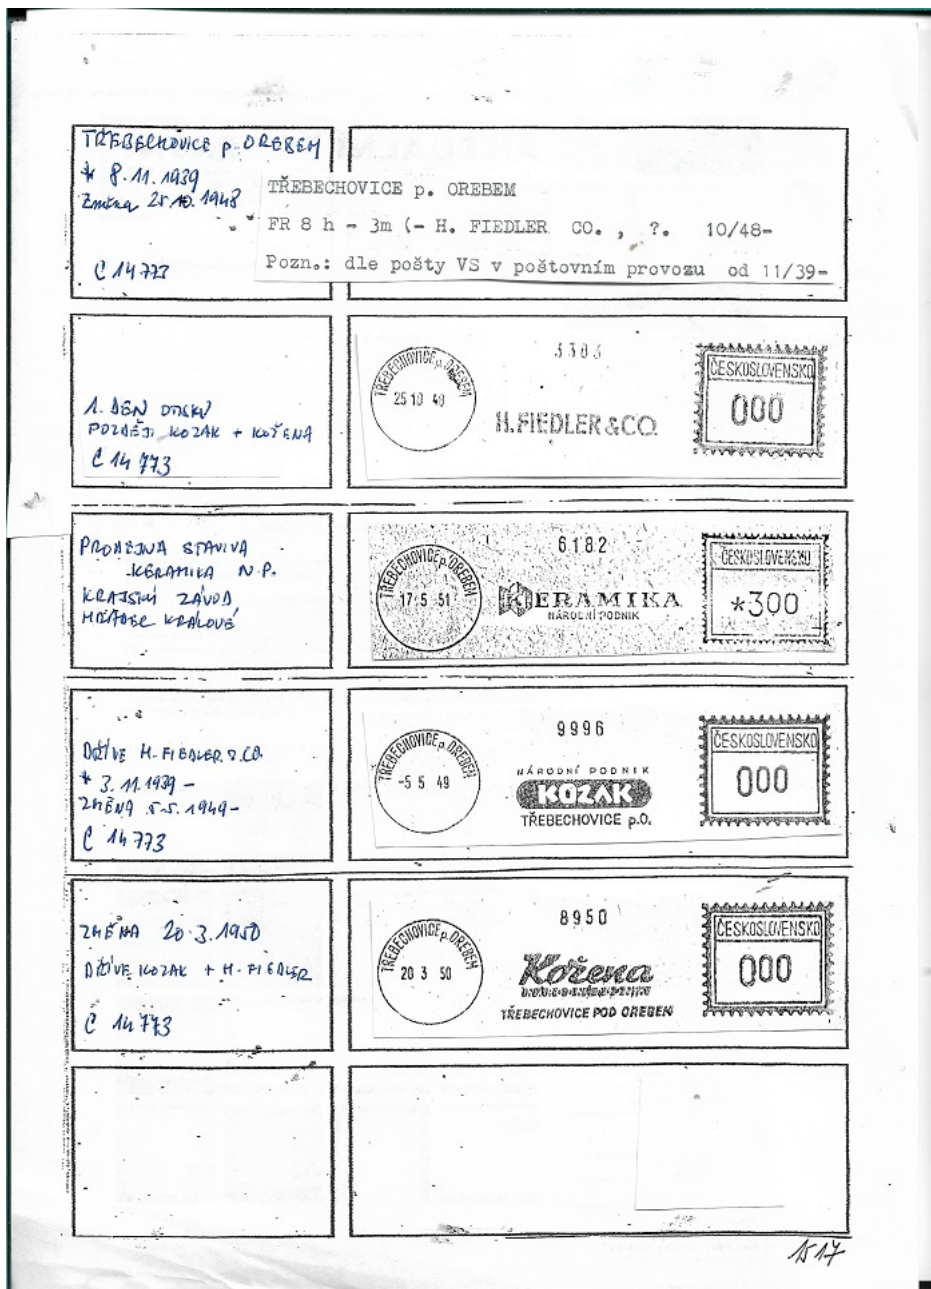 TŘEBECHOVICE p. OREBEM
* 8.11.1939
Změna 25.10.1948
C 14 773
TŘEBECHOVICE p. OREBEM
FR 8 h - 3m (- H. FIEDLER CO. , ?. 10/48-
Pozn.: dle pošty VS v poštovním provozu od 11/39-
1. DEN OTISKU
POZDĚJI KOZAK + KOŘENA
C 14 773
TŘEBECHOVICE p. OREBEM
25 10 48
3303
H. FIEDLER & CO.
ČESKOSLOVENSKO
000
PRODEJNA STAVIVA
KERAMIKA N.P.
KRAJSKÝ ZÁVOD
HRADEC KRÁLOVÉ
TŘEBECHOVICE p. OREBEM
17.5 51
6182
KERAMIKA
NÁRODNÍ PODNIK
ČESKOSLOVENSKO
*300
DŘÍVE H. FIEDLER & CO.
* 3.11.1939 -
ZMĚNA 5.5.1949-
C 14 773
TŘEBECHOVICE p. OREBEM
-5 5 49
9996
NÁRODNÍ PODNIK
KOZAK
TŘEBECHOVICE p.O.
ČESKOSLOVENSKO
000
ZMĚNA 20.3.1950
DŘÍVE KOZAK + H. FIEDLER
C 14 773
TŘEBECHOVICE p. OREBEM
20 3 50
8950
Kořena
TŘEBECHOVICE POD OREBEM
ČESKOSLOVENSKO
000
1517